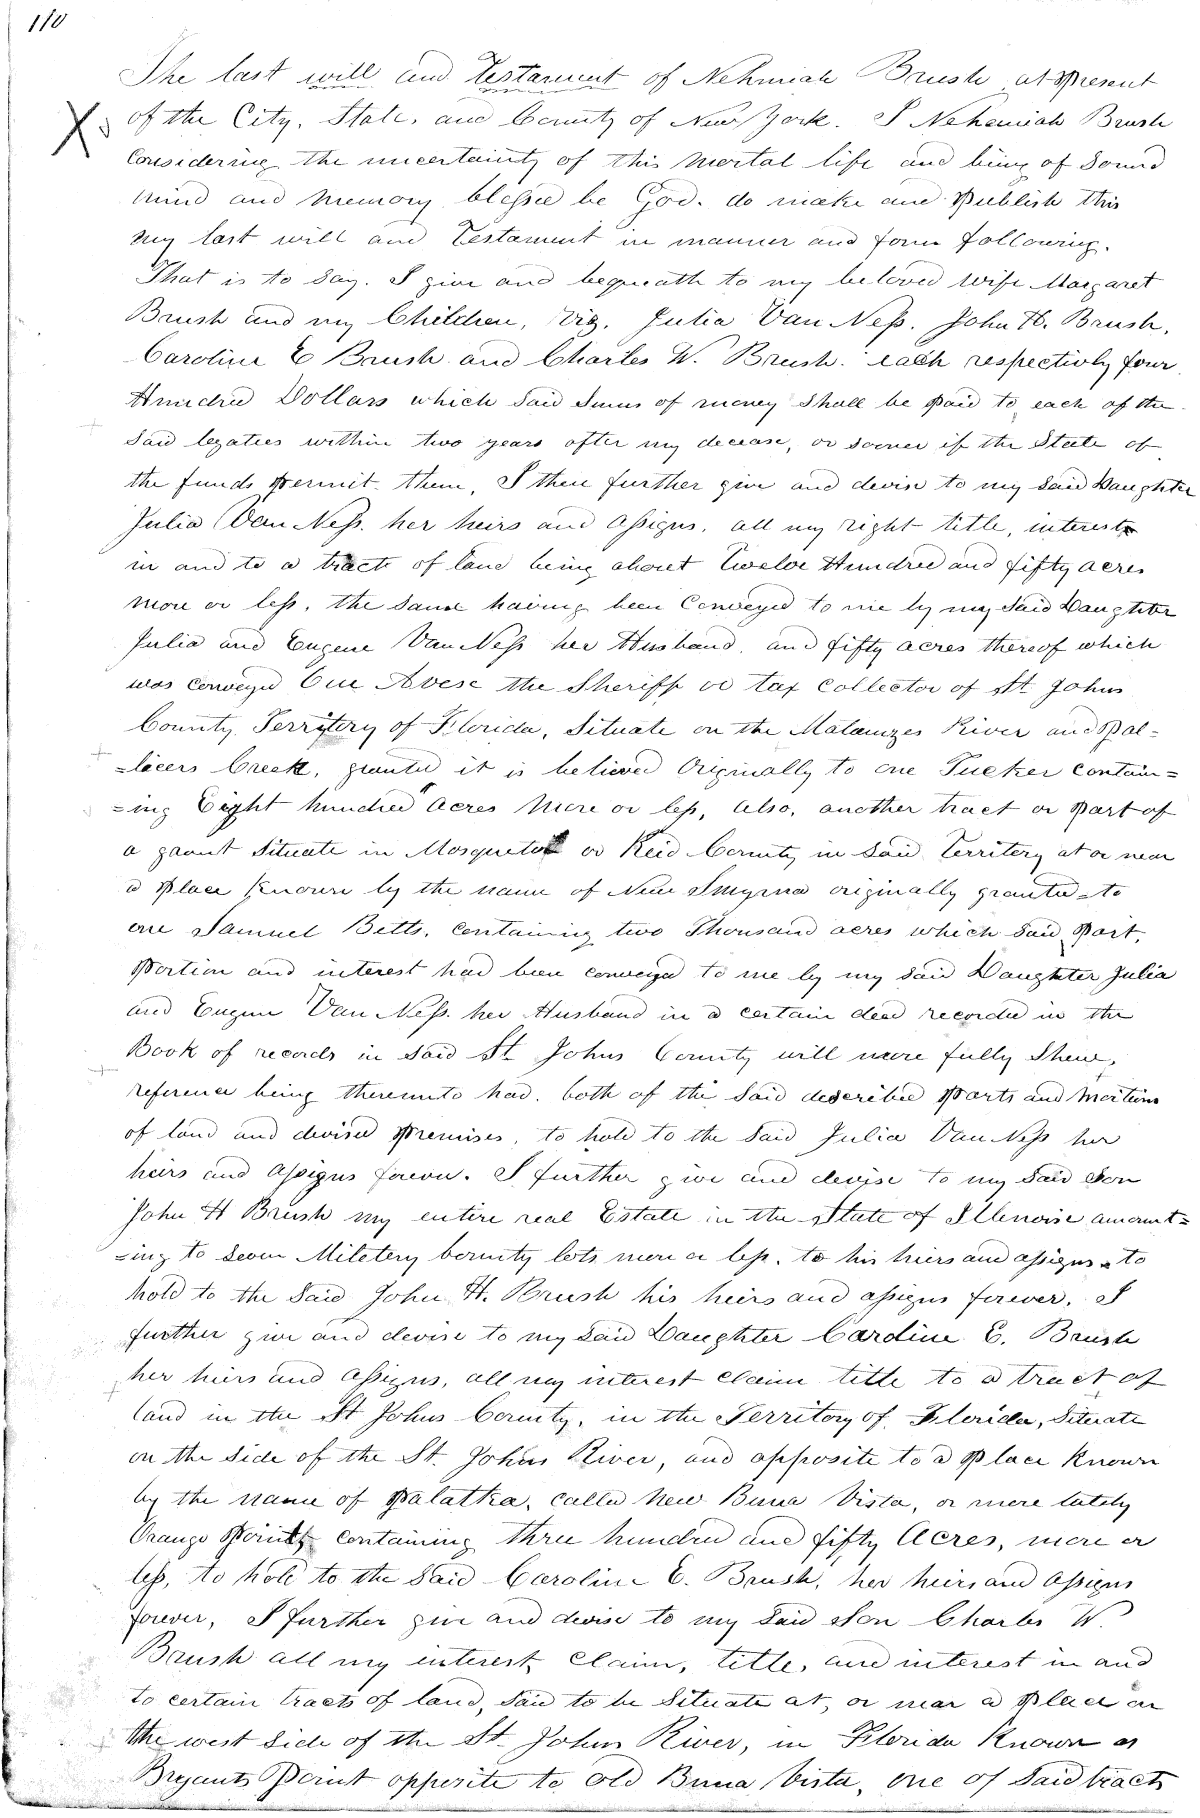 110
The last will and Testament of Nehmiah Brush at present
of the City, State, and County of New York. I Nehemiah Brush
Considering the uncertainty of this mortal life and being of Sound
mind and memory blessed be God. do make and Publish this
my last will and Testament in manner and form following.
That is to Say. I give and bequeath to my beloved Wife Margaret
Brush and my Children, Viz, Julia Van Ness. John H. Brush,
Caroline E Brush and Charles W. Brush. each respectivly four
Hundred Dollars which Said Sums of money Shall be paid to each of the
Said legatees within two years after my decease, or sooner if the State of
the funds permit them, I then further give and devise to my Said Daughter
Julia Van Ness. her heirs and assigns, all my right title, interest
in and to a tract of land being about Twelve Hundred and fifty acres
more or less, the Same having been Conveyed to me by my Said Daughter
Julia and Eugene Van Ness her Husband, and fifty acres thereof which
was conveyed the Sheriff or tax Collector of St Johns
County, Territery of Florida, Situate on the Matanzes River and Pal=
=licers Creek, granted it is believed Originally to one Tucker Contain=
=ing Eight hundred acres More or less, also, another tract or part of
a graunt Situate in Mosqueto or Reid County in Said Territery at or near
a place Known by the name of New Smyrna originally granted to
one Samuel Betts, Containing two Thousand acres which Said Part,
Portion and interest had been conveyed to me by my Said Daughter Julia
and Eugene Van Ness. her Husband in a certain deed recorded in the
Book of records in Said St Johns County will more fully Shew,
reference being thereunto had. both of the Said described parts and
of land and devised premises, to hold to the Said Julia Van Ness her
heirs and assigns forever. I further give and devise to my Said Son
John H Brush my entire real Estate in the State of Illenoise amount=
=ing to Seven Miletery bounty lots more or less. to his heirs and assigns to
hold to the Said John H. Brush his heirs and assigns forever. I
further give and devise to my Said Daughter Caroline E. Brush
her heirs and assigns, all my interest claim title to a tract of
land in the St Johns County, in the Territory of Florida, Situate
on the Side of the St. Johns River, and opposite to a place Known
by the name of Palatka, called New Buna Vista, or more lately
Orange Point, Containing three hundred and fifty Acres, more or
less, to hold to the Said Caroline E. Brush, her heirs and assigns
forever, I further give and devise to my Said Son Charles W.
Brush all my interest, Claim, title, and interest in and
to certain tracts of land, Said to be Situate at, or near a place on
the west Side of the St. Johns River, in Florida Known as
Bryants Point opposite to Old Buna Vista, one of Said tracts